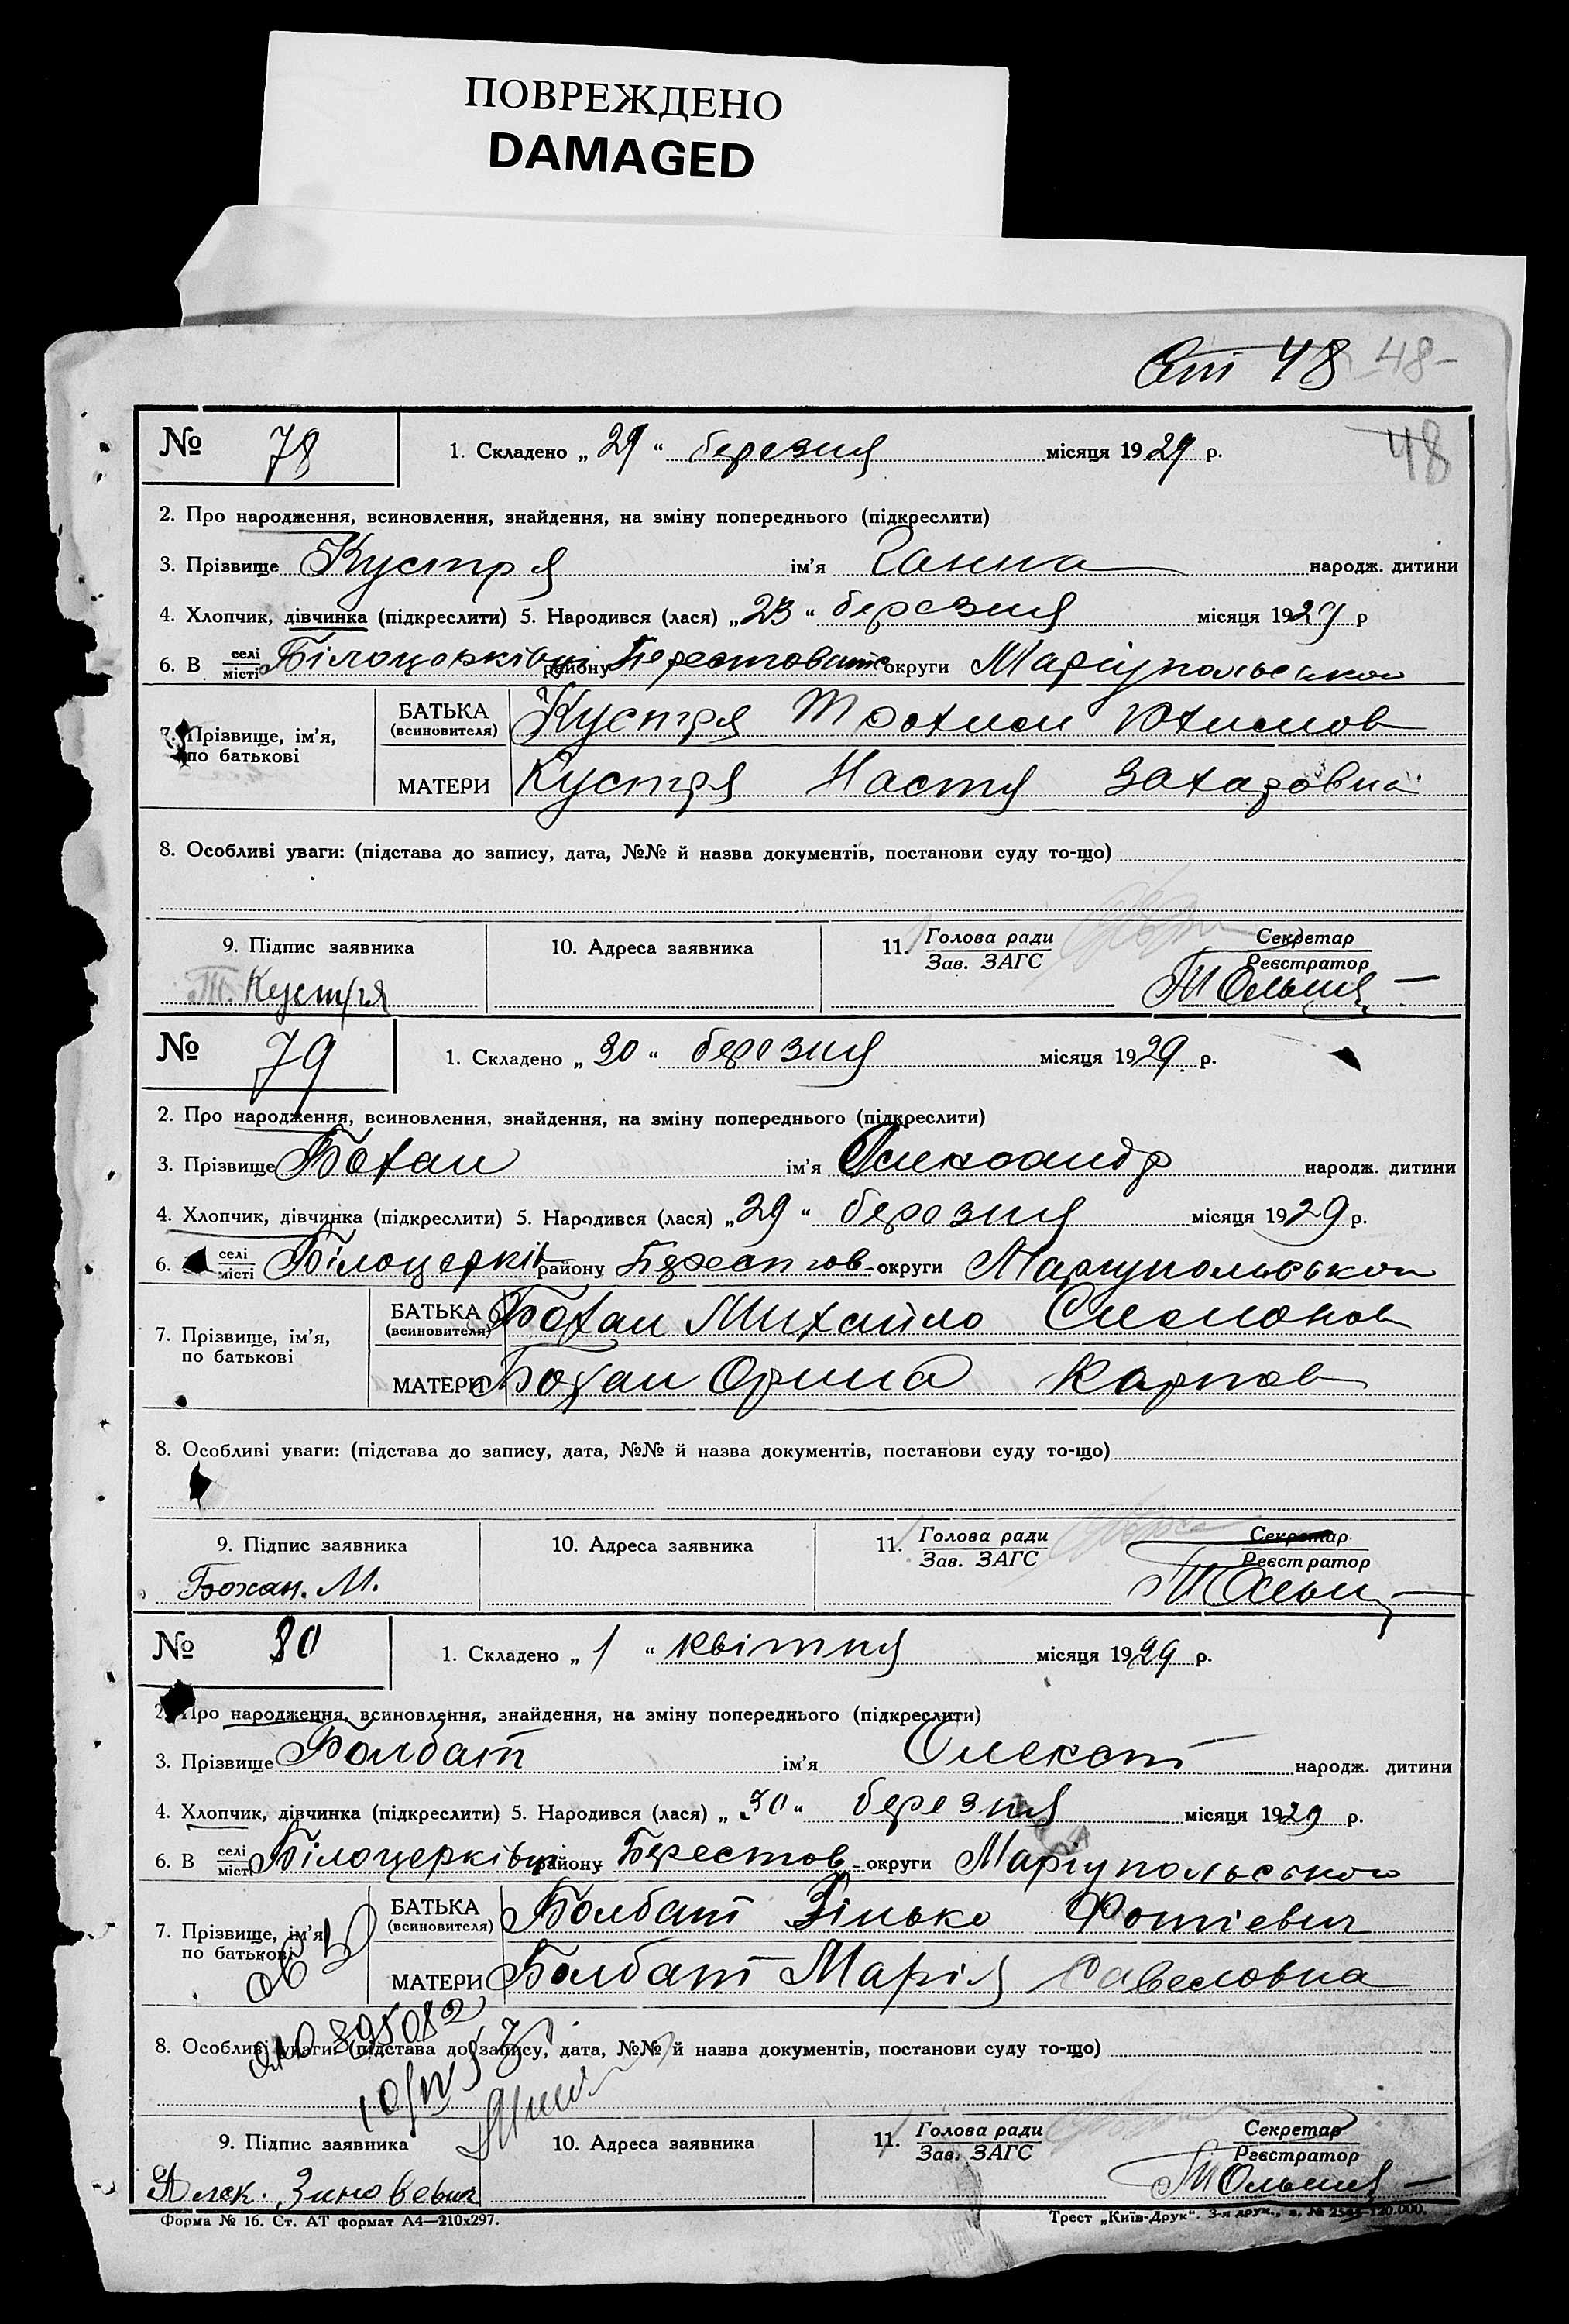 ПОВРЕЖДЕНО
DAMAGED
48 48
48
№ 78 1. Складено „ 29 “ березня місяця 1929 р.
2. Про народження, всиновлення, знайдення, на зміну попереднього (підкреслити)
3. Прізвище Кустря ім'я Ганна народж. дитини
4. Хлопчик, дівчинка (підкреслити) 5. Народився (лася) „ 23 “ березня місяця 1929 р
6. В селі місті Білоцерківці району округи Маріупольської
7. Прізвище, ім'я, по батькові БАТЬКА (всиновителя) Кустря Юхимов
МАТЕРИ Кустря Настя Захаровна
8. Особливі уваги: (підстава до запису, дата, №№ й назва документів, постанови суду то-що)
9. Підпис заявника 10. Адреса заявника 11. Голова ради Зав. ЗАГС Секретар Реєстратор
Т. Кустря
№ 79 1. Складено „ 30 “ березня місяця 1929 р.
2. Про народження, всиновлення, знайдення, на зміну попереднього (підкреслити)
3. Прізвище Бохан ім'я Олександр народж. дитини
4. Хлопчик, дівчинка (підкреслити) 5. Народився (лася) „ 29 “ березня місяця 1929 р.
6. селі місті Білоцерків району Берестов- округи Маріупольської
7. Прізвище, ім'я, по батькові БАТЬКА (всиновителя) Бохан Михайло
МАТЕРИ Бохан Орина Карпов
8. Особливі уваги: (підстава до запису, дата, №№ й назва документів, постанови суду то-що)
9. Підпис заявника 10. Адреса заявника 11. Голова ради Зав. ЗАГС Секретар Реєстратор
Бохан. М.
№ 80 1. Складено „ 1 “ квітня місяця 1929 р.
2. Про народження, всиновлення, знайдення, на зміну попереднього (підкреслити)
3. Прізвище Болбат ім'я народж. дитини
4. Хлопчик, дівчинка (підкреслити) 5. Народився (лася) „ 30 “ березня місяця 1929 р.
6. В селі місті Білоцерківці району Берестов- округи Маріупольської
7. Прізвище, ім'я по батькові БАТЬКА (всиновителя) Болбат Зінько Фотієвич
МАТЕРИ Болбат Марія Савеловна
8. Особливі уваги: (підстава до запису, дата, №№ й назва документів, постанови суду то-що)
9. Підпис заявника 10. Адреса заявника 11. Голова ради Зав. ЗАГС Секретар Реєстратор
Форма № 16. Ст. АТ формат А4—210х297. Трест „Київ-Друк“.